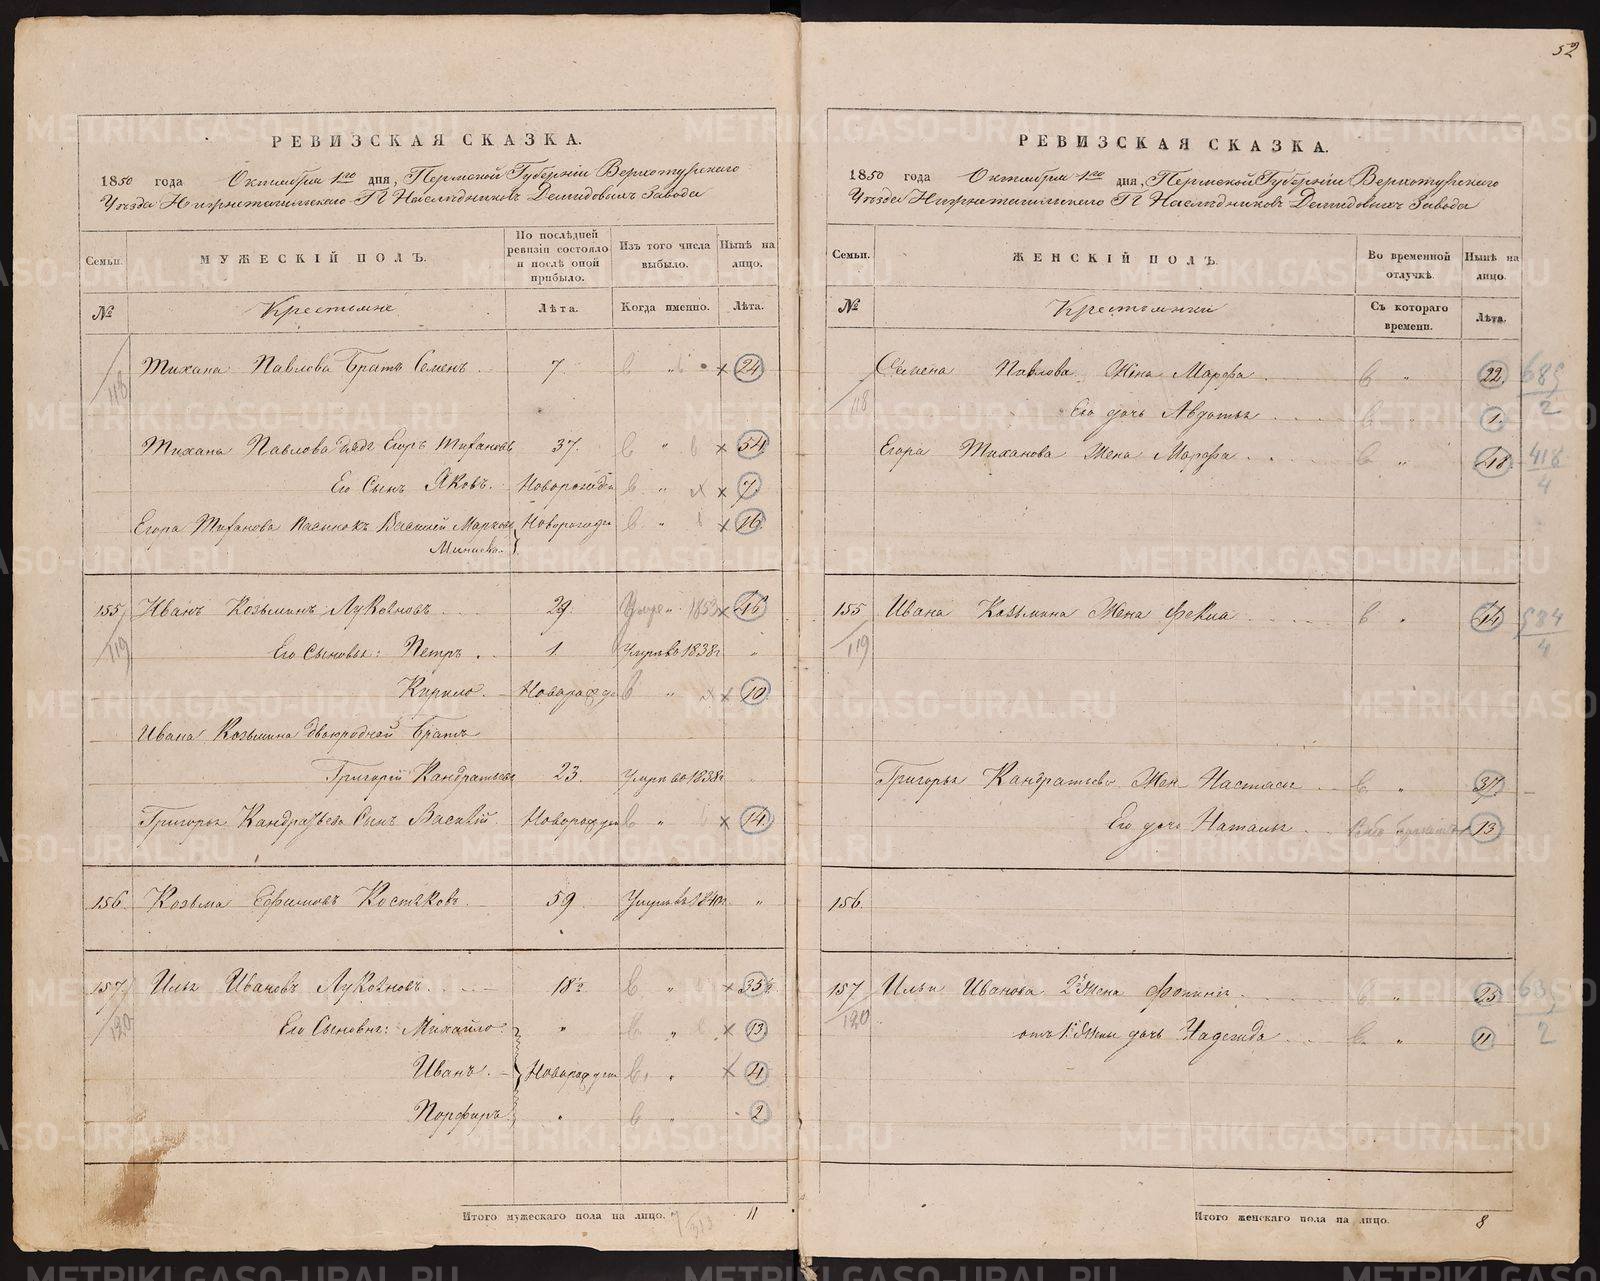 52
РЕВИЗСКАЯ СКАЗКА.
1850 года Октября 1го дня, Пермской Губернiи Верхотурскаго
Уѣзда Нижнетагильскаго Гг Наслѣдниковъ Демидовыхъ Завода
Семьи.
МУЖЕСКIЙ ПОЛЪ.
По послѣдней ревизiи состояло и послѣ оной прибыло.
Изъ того числа выбыло.
Нынѣ на лицо.
№
Крестьяне
Лѣта.
Когда именно.
Лѣта.
118
Тихана Павлова Братъ Семенъ 7 24
Тихана Павлова дядя Егоръ Тихановъ 37. 54
Его Сынъ Яковъ. Новорожден 7
Егора Тиханова Пасынокъ Василiй Марковъ Новорожден 16
Минаевъ.
155 Иванъ Козьминъ Лукояновъ 29. 1853
119
Его Сыновья: Петръ 1. Умеръ въ 1838г "
Кирило. Новорожде " 10
Ивана Козьмина двоюродной Братъ
Григорiй Кандратьевъ 23 Умеръ въ 1838г
Григорья Кандратьева Сынъ Василiй. Новорожден " 14
156. Козьма Ефимовъ Костяковъ 59. Умеръ въ 1840г. "
157 Илья Ивановъ Лукояновъ 18½ " 35½
120
Его Сыновья: Михайло " " 13
Иванъ. Новорожден " 4
Порфиръ " " 2
Итого мужескаго пола на лицо. 11
РЕВИЗСКАЯ СКАЗКА.
1850 года Октября 1го дня, Пермской Губернiи Верхотурскаго
Уѣзда Нижнетагильскаго Гг Наслѣдниковъ Демидовыхъ Завода
Семьи.
ЖЕНСКIЙ ПОЛЪ.
Во временной отлучкѣ.
Нынѣ на лицо.
№
Крестьянки
Съ котораго времени.
Лѣта.
118
Семена Павлова Жена Марфа " 22. 685/2
Его дочь Авдотья " 1.
Егора Тиханова Жена Марфа " 48 418/4
155 Ивана Козьмина Жена Фекла " 44 584/4
119
Григорья Кандратьева Жена Настасья " 37.
Его дочь Наталья 13
156.
157 Ильи Иванова 2я Жена Фотинiя " 25
120
отъ 1й Жены дочь Надежда " 11
Итого женскаго пола на лицо. 8
METRIKI.GASO-URAL.RU